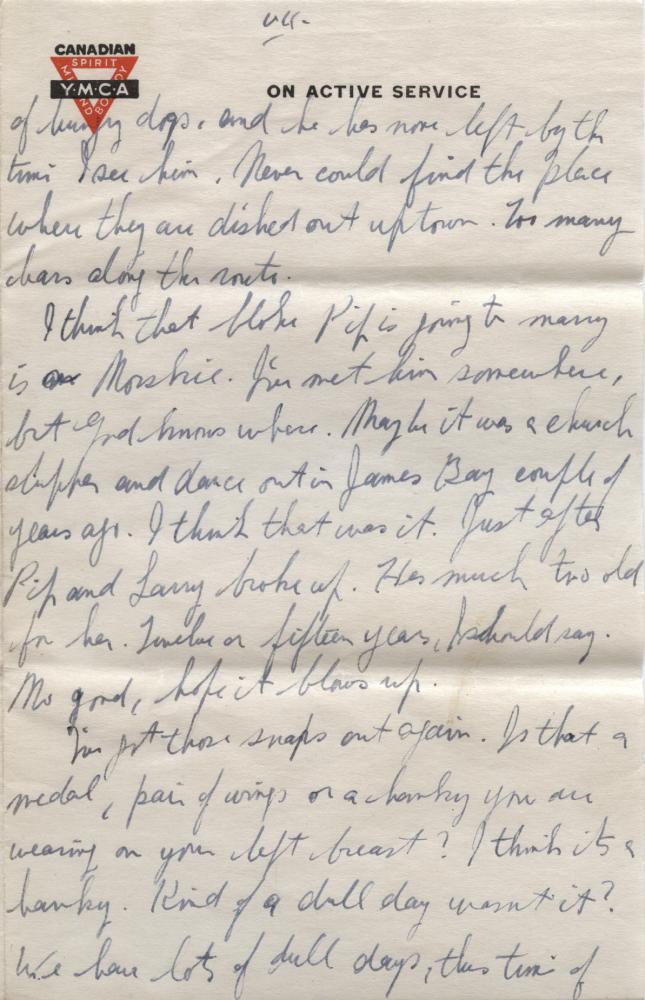 VII-
CANADIAN
SPIRIT
MIND BODY
Y·M·C·A
ON ACTIVE SERVICE
of hungry dogs. and he has none left by the
time I see him. Never could find the place
where they are dished out uptown. Too many
bars along the route.
I think that bloke Pip is going to marry
is Morskie. I've met him somewhere,
but God knows where. Maybe it was a church
supper and dance out in James Bay couple of
years ago. I think that was it. Just after
Pip and Larry broke up. Hes much too old
for her. Twelve or fifteen years, I should say.
No good, hope it blows up.
I've got those snaps out again. Is that a
medal, pair of wings or a hanky you are
wearing on your left breast? I think its a
hanky. Kind of a dull day wasnt it?
We have lots of dull days, this time of